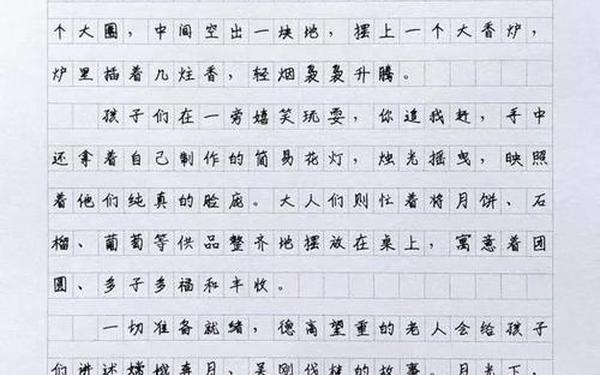 个大圈，中间空出一块地，摆上一个大香炉，
炉里插着几炷香，轻烟袅袅升腾。
孩子们在一旁嬉笑玩耍，你追我赶，手中
还拿着自己制作的简易花灯，烛光摇曳，映照
着他们纯真的脸庞。大人们则忙着将月饼、石
榴、葡萄等供品整齐地摆放在桌上，寓意着团
圆、多子多福和丰收。
一切准备就绪，德高望重的老人会给孩子
们讲述嫦娥奔月、吴刚伐桂的故事。月光下，